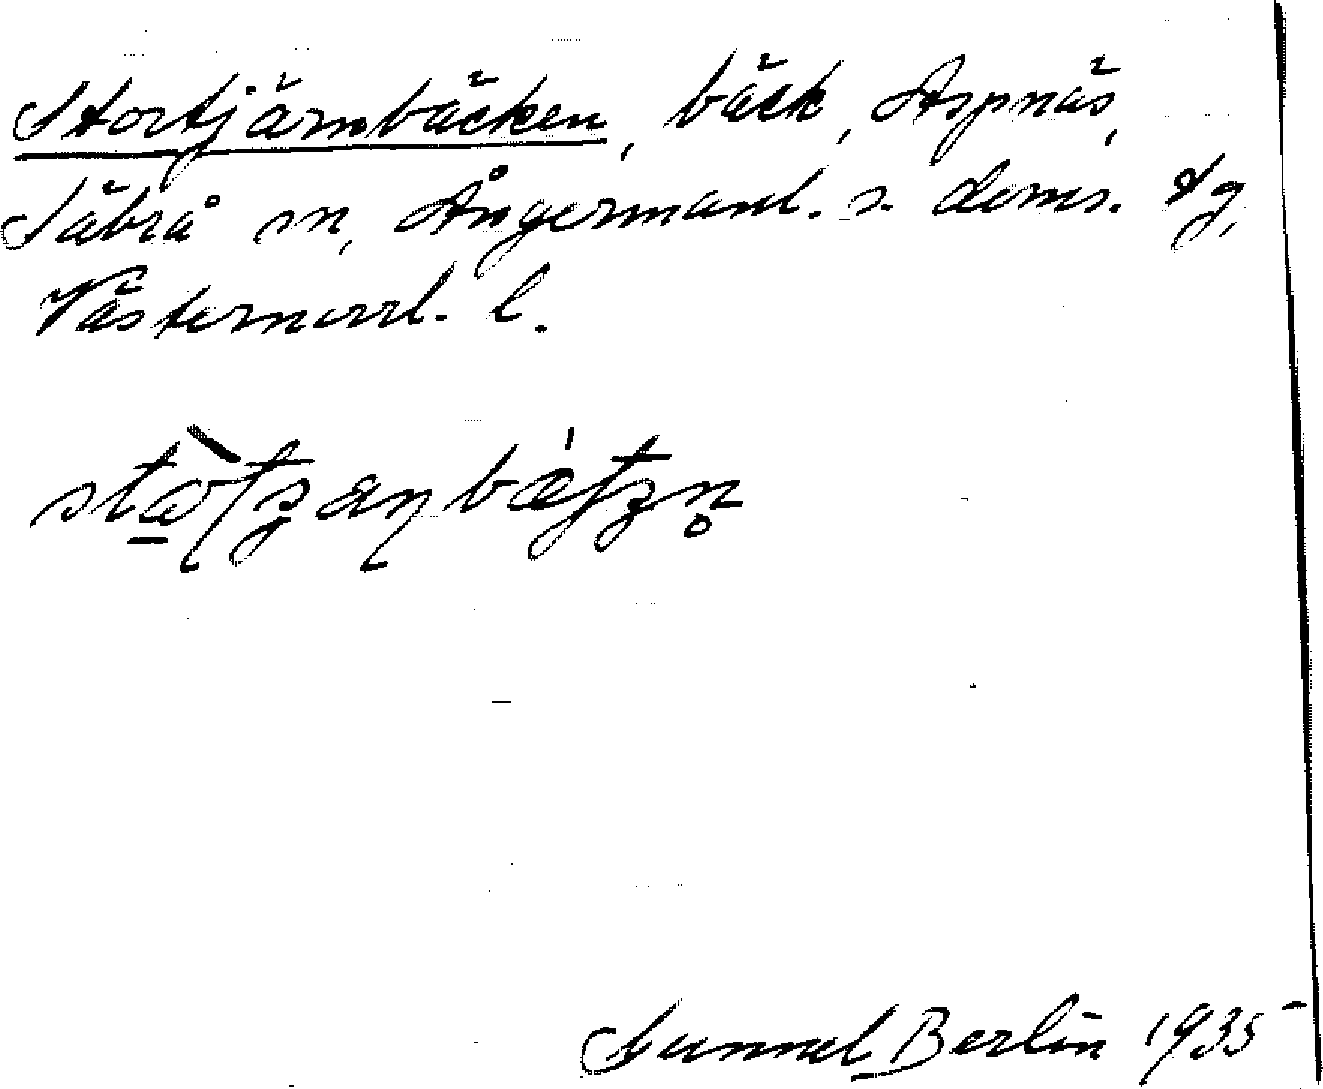 Stortjärnbäcken, bäck, Aspnäs,
Säbrå sn, Ångermanl. s. doms. tg,
Västernorrl. l.
Gunnel Berlin 1935